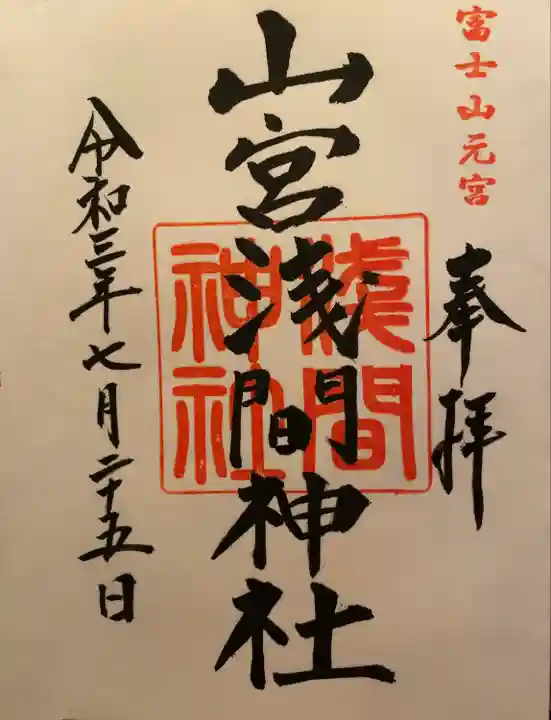 富士山元宮
奉拝
山宮浅間神社
浅間
神社
令和三年七月二十五日